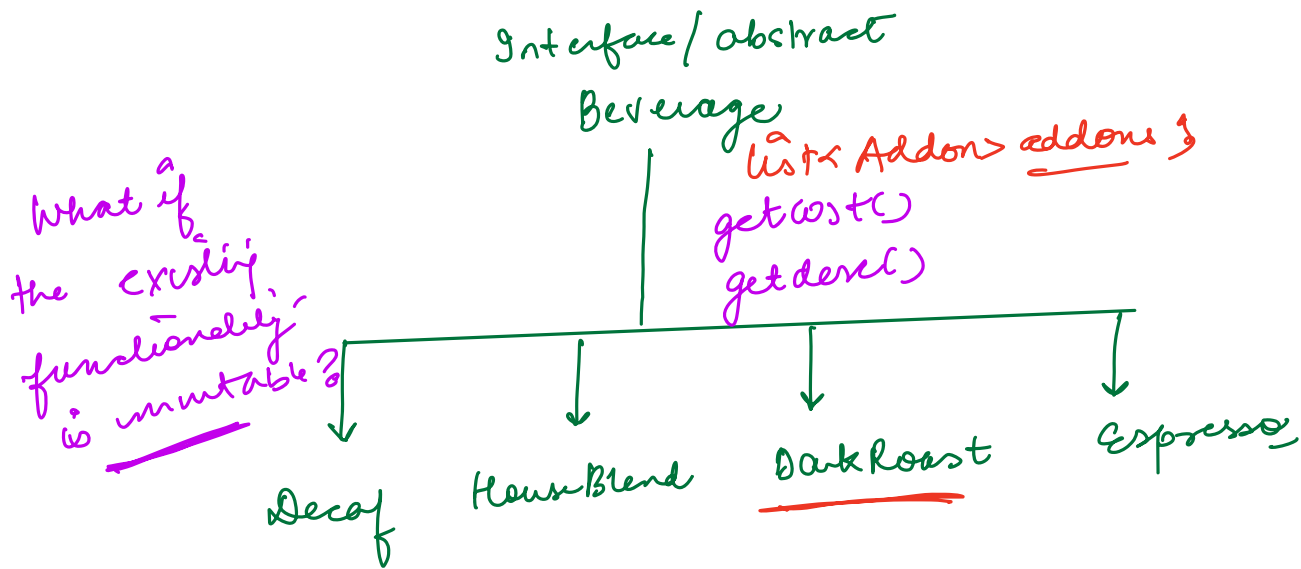 Interface / abstract
Beverage
List< Addon> addons ;
getcost()
getdesc()
What if
the existing
functionality
is immutable?
Decaf
HouseBlend
DarkRoast
Espresso